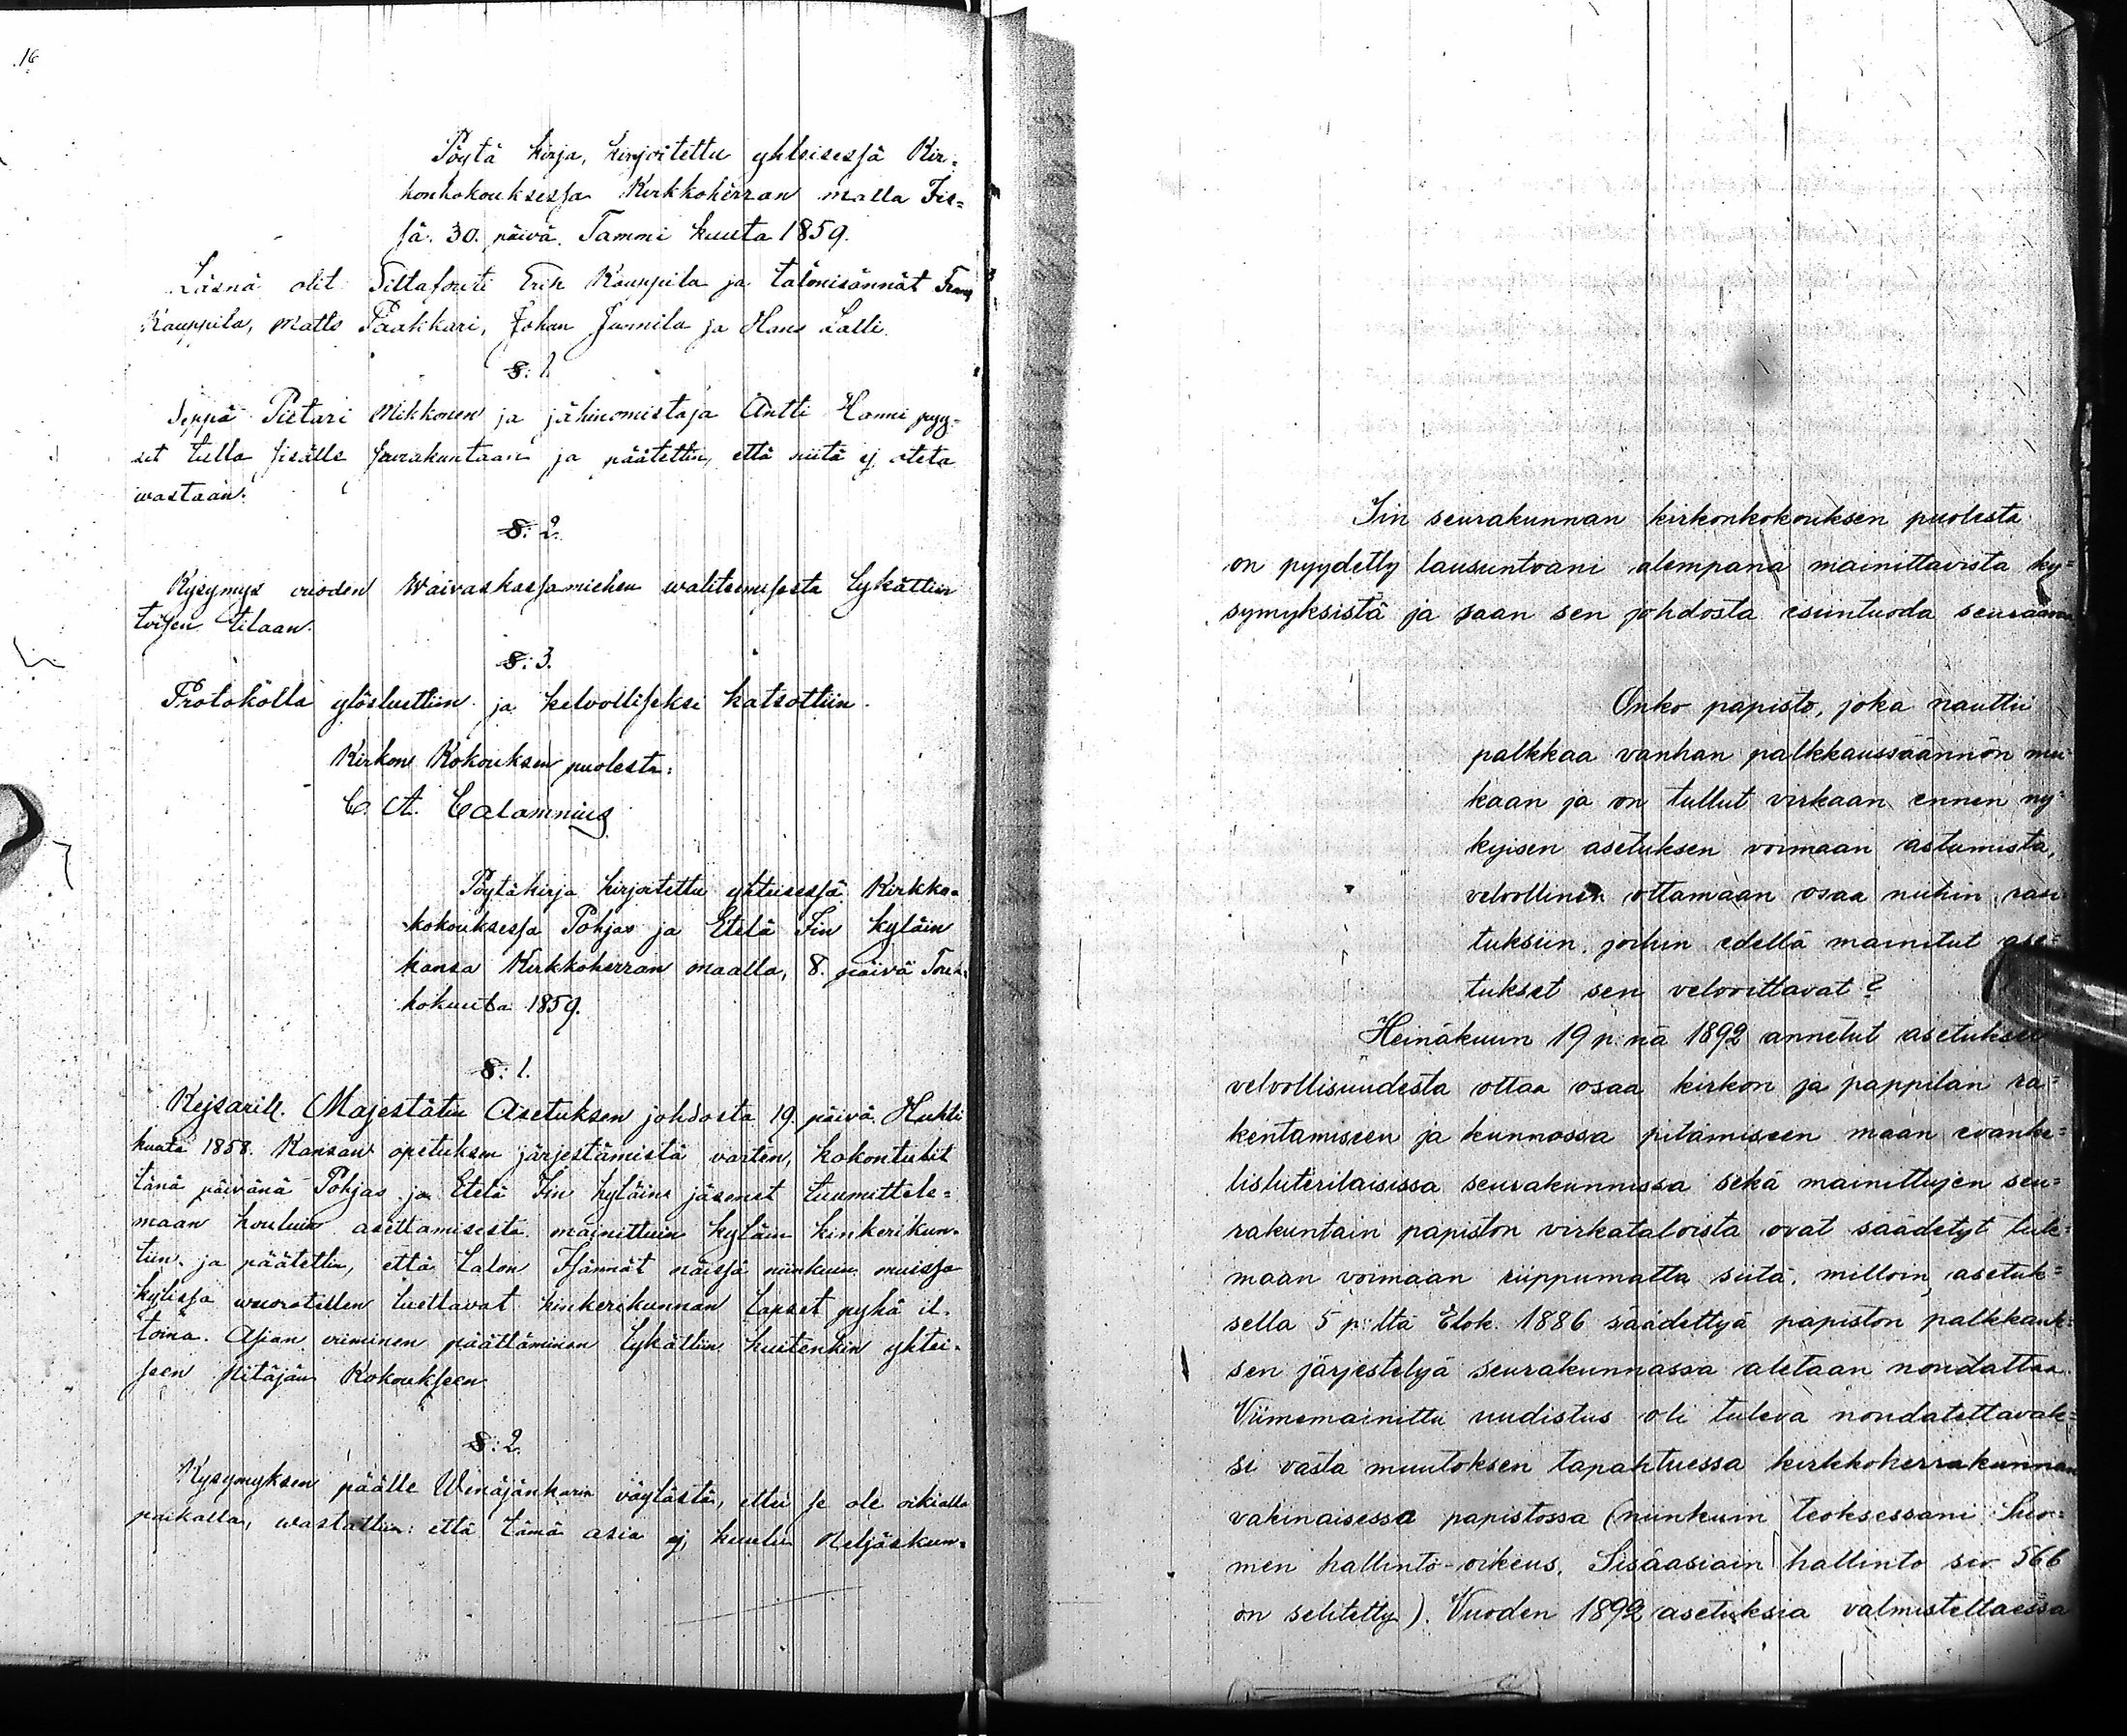 16
Pöytä kirja, kirjoitettu yhteisessä Kir=
honkokouksessa Kirkkoherran malla Iis=
sä. 30. päivä. Tammi kuuta 1859.
Läsnä olit Siltafouti Erik Kauppila ja talonisännät Frans
Kauppila, Matts Paakkari, Johan Jurmila ja Hans Lalli.
§: 1.
Seppä Pietari Mikkonen ja jähinomistaja Antti Hanni pyy=
sit tulla sisälle seurakuntaan ja päätettin, että niitä ej oteta
wastaan.
§: 2.
Kysymys vuoden Waivaskassamiehen walitsemisesta lykättiin
toisen tilaan.
§: 3.
Protokolla ylösluettiin ja kelvolliseksi katsottiin.
Kirkon Kokouksen puolesta:
C. A. Calamnius
Pöytäkirja kirjoitettu yhteisessä Kirkko=
kokouksessa Pohjas ja Etelä Iin kyläin
kansa Kirkkoherran maalla, 8. päivä Tou=
kokuuta 1859.
§: 1.
Kejsarill. Majestätin Asetuksen johdosta 19. päivä Huhti
kuuta 1858. Kansan opetuksen järjestämistä varten, kokontulit
tänä päivänä Pohjas ja Etelä Iin kyläin jäsenet tuumittele=
maan koulun asettamisesta mainittuin kyläin kinkerikun=
tiin ja päätettin, että talon Isännät näissä niinkuin muissa
kylissä wuorotellen luettavat kinkerikunnan lapset pyhä il=
toina. Asian viiminen päättäminen lykättiin kuitenkin yhtei=
seen pitäjän Kokoukseen
§: 2.
Kysymyksen päälle Wenäjänkarin väylästä, ettei se ole oikialla
paikalla, wastattiin: että tämä asia ej kuulu Neljäskun=
Iin seurakunnan kirkonkokouksen puolesta
on pyydetty lausuntoani alempana mainittavista ky=
symyksistä ja saan sen johdosta esiintuoda seuraavaa
Onko papisto, joka nauttii
palkkaa vanhan palkkaussäännön mu=
kaan ja on tullut virkaan ennen ny=
kyisen asetuksen voimaan astumista,
velvollinen ottamaan osaa niihin rasi
tuksiin, joihin edellä mainitut ase=
tukset sen velvoittavat?
Heinäkuun 19 p:nä 1892 annetut asetukset
velvollisuudesta ottaa osaa kirkon ja pappilan ra=
kentamiseen ja kunnossa pitämiseen maan evanke=
lisluterilaisissa seurakunnissa sekä mainittujen seu=
rakuntain papiston virkataloista ovat säädetyt tule=
maan voimaan riippumatta siitä, milloin asetuk=
sella 5 p:ltä Elok. 1886 säädettyä papiston palkkauk=
sen järjestelyä seurakunnassa aletaan noudattaa.
Viimemainittu uudistus oli tuleva noudatettavak=
si vasta muutoksen tapahtuessa kirkkoherrakunnan
vakinaisessa papistossa (niinkuin teoksessani Suo=
men hallinto-oikeus, Sisäasiain hallinto siv. 566
on selitetty). Vuoden 1892 asetuksia valmistellaessa